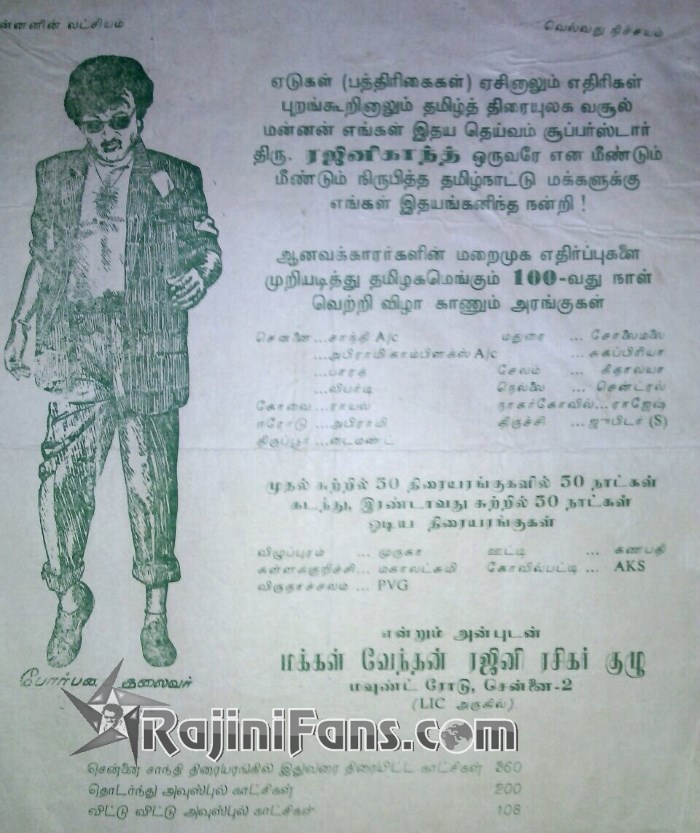 ன்னனின் லட்சியம்
வெல்வது நிச்சயம்
ஏடுகள் (பத்திரிகைகள்) ஏசினாலும் எதிரிகள்
புறங்கூறினாலும் தமிழ்த் திரையுலக வசூல்
மன்னன் எங்கள் இதய தெய்வம் சூப்பர்ஸ்டார்
திரு. ரஜினிகாந்த் ஒருவரே என மீண்டும்
மீண்டும் நிருபித்த தமிழ்நாட்டு மக்களுக்கு
எங்கள் இதயங்கனிந்த நன்றி !
ஆணவக்காரர்களின் மறைமுக எதிர்ப்புகளை
முறியடித்து தமிழகமெங்கும் 100-வது நாள்
வெற்றி விழா காணும் அரங்குகள்
சென்னை...சாந்தி A/c மதுரை ... சோலைமலை
...அபிராமி காம்பிளக்ஸ் A/c ... சுகப்பிரியா
...பாரத் சேலம் ... கீதாலயா
...லிபர்டி நெல்லை ... சென்ட்ரல்
கோவை...ராயல் நாகர்கோவில்...ராஜேஷ்
ஈரோடு ...அபிராமி திருச்சி ... ஜுபிடர் (S)
திருப்பூர்...டைமண்ட்
முதல் சுற்றில் 50 திரையரங்குகளில் 50 நாட்கள்
கடந்து, இரண்டாவது சுற்றில் 50 நாட்கள்
ஓடிய திரையரங்குகள்
விழுப்புரம் ... முருகா ஊட்டி ... கணபதி
கள்ளக்குறிச்சி ... மகாலட்சுமி கோவில்பட்டி ... AKS
விருதாச்சலம் ... PVG
என்றும் அன்புடன்
மக்கள் வேந்தன் ரஜினி ரசிகர் குழு
மவுண்ட் ரோடு, சென்னை-2
(LIC அருகில்)
தலைவர்
RajiniFans.com
சென்னை சாந்தி திரையரங்கில் இதுவரை திரையிட்ட காட்சிகள் 360
தொடர்ந்து அவுஸ்புல் காட்சிகள் 200
விட்டு விட்டு அவுஸ்புல் காட்சிகள் 108